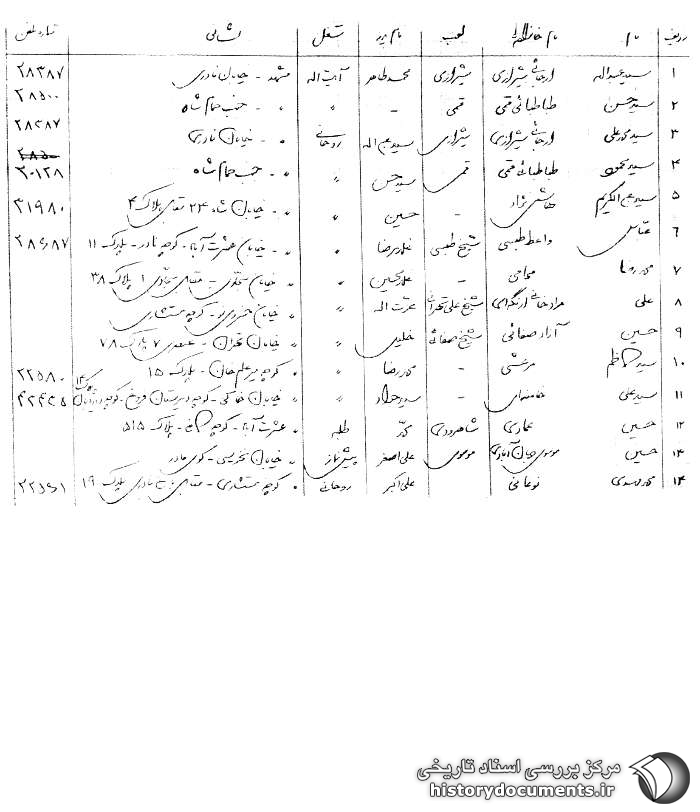 ردیف نام نام خانوادگی لقب نام پدر شغل نشانی شماره تلفن
۱ سید عبداله شیرازی شیرازی محمد طاهر آیت اله مشهد - خیابان نادری ۲۸۳۸۷
۲ سید حسن طباطبائی قمی قمی - " " - جنب حمام شاه ۲۸۵۰۰
۳ سید محمد علی شیرازی شیرازی سید عبداله روحانی " - خیابان نادری
۴ سید محمود طباطبائی قمی قمی سید حسن " " - جنب حمام شاه ۲۰۱۲۸
۵ سید عبدالکریم هاشمی نژاد - حسین " " - خیابان شاه ۲۴ مقابل پلاک ۴ ۳۱۹۸۰
۶ عباس واعظ طبسی شیخ طبسی غلامرضا " " - خیابان عشرت آباد - کوچه نادر - پلاک ۱۱
۷ محمدرضا محامی - غلامحسین " " - خیابان - مقابل ۱ پلاک ۳۸
۸ علی مرادخانی شیخ علی تهرانی عزت اله " خیابان خسروی نو - کوچه مستشاری
۹ حسین آزاد صفائی شیخ صفائی خلیل " " خیابان تهران - ۷ پلاک ۷۸
۱۰ سید کاظم مرعشی - محمدرضا " " کوچه میر علم خان - پلاک ۱۵ ۲۲۵۸۰
۱۱ سید علی خامنه‌ای - سید جواد " " خیابان خاکی - کوچه دبیرستان فروغ
۱۲ حسین عماری شاهرودی طلبه " عشرت آباد - پلاک ۵۱۵
۱۳ حسین موسوی موسوی علی اصغر پیش نماز " خیابان نخریسی - کوی مادر
۱۴ محمد مهدی نوغانی علی اکبر روحانی " کوچه مستشاری - مقابل پلاک ۱۹
مرکز بررسی اسناد تاریخی
historydocuments.ir